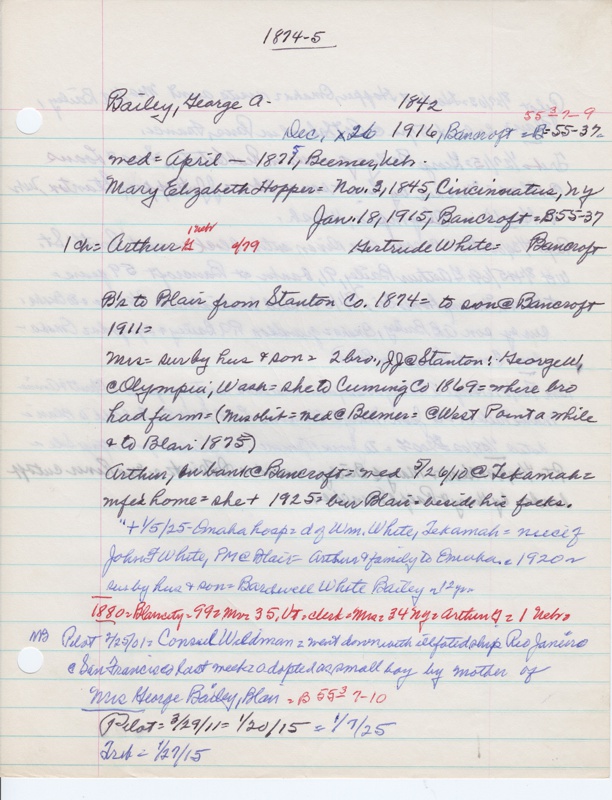 1874-5
Bailey, George A. 1842
55-3 7-9
Dec, x26 1916, Bancroft = B=55-37
med = April — 1875, Beemer, Neb.
Mary Elizabeth Hopper = Nov. 3, 1845, Cincinnatus, NY
Jan. 18, 1915, Bancroft = B55-37
1 ch = Arthur G 1 nebr 4/79 Gertrude White = Bancroft
B/z to Blair from Stanton Co. 1874 = to son @ Bancroft
1911 =
Mrs = sur by hus & son = 2 bro., JJ @ Stanton: George W,
@ Olympia, Wash = she to Cuming Co 1869 = where bro
had farm = (Mrs obit = med @ Beemer = @ West Point a while
& to Blair 1875)
Arthur, in bank @ Bancroft = med 5/26/10 @ Tekamah =
home = she + 1925 = bur Blair = beside his folks.
"+ 1/5/25 - Omaha hosp = d of Wm. White, Tekamah = niece of
John F White, PM @ Blair = Arthur & family to Omaha c 1920 =
sur by hus & son = Bardwell White Bailey 12 yr.
1880 = Blair city = 99 = Mr = 35, Vt = clerk = Mrs = 34 NY = Arthur G = 1 Nebr
NB Pilot 2/25/01 = Consul Wildman = went down with illfated ship Rio Janiro
@ San Francisco last week = adopted as small boy by mother of
Mrs George Bailey, Blair = B 55-3 7-10
Pilot = 3/29/11 = 1/20/15 = 1/7/25
Trib = 1/27/15